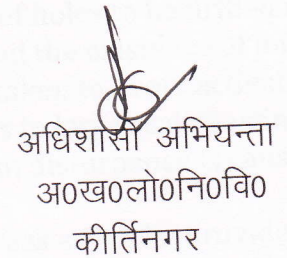 अधिशासी अभियन्ता
अ0ख0लो0नि0वि0
कीर्तिनगर